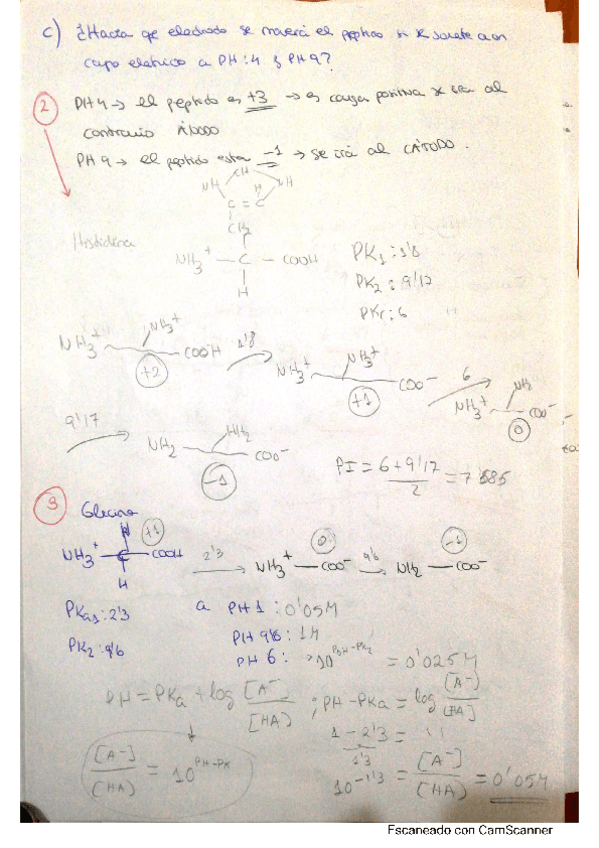 c) ¿Hacia qe electrodo se moverá el peptido si se somete a un
campo eletrico a PH:4 y PH9?
2
PH4 → el peptido es +3 → es carga positiva se irá al
contrario ÁNODO
PH 9 → el peptido esta -1 → se irá al CÁTODO.
CH
NH H NH
C = C
CH2
Histidina
NH3+ — C — COOH
H
PK1: 1'8
PK2: 9'17
PKr: 6
NH3+ NH3+ COOH 1'8 NH3+ NH3+ COO- 6 NH3+ NH COO-
+2 +1 0
9'17 NH2 NH2 COO-
-1
PI = 6+9'17 / 2 = 7'585
3
Glicina
+1 0 -1
NH3+ C COOH 2'3 NH3+ — COO- 9'6 NH2 — COO-
H
PKa1: 2'3
PK2: 9'6
a PH 1: 0'05M
PH 9'6: 1M
PH 6: → 10^PH-PK2 = 0'025M
PH = PKa + log [A-]/[HA] ; PH-PKa = log [A-]/[HA]
1 - 2'3 = ''
1'3
[A-]/[HA] = 10^PH-PK
10^-1'3 = [A-]/[HA] = 0'05M
Escaneado con CamScanner